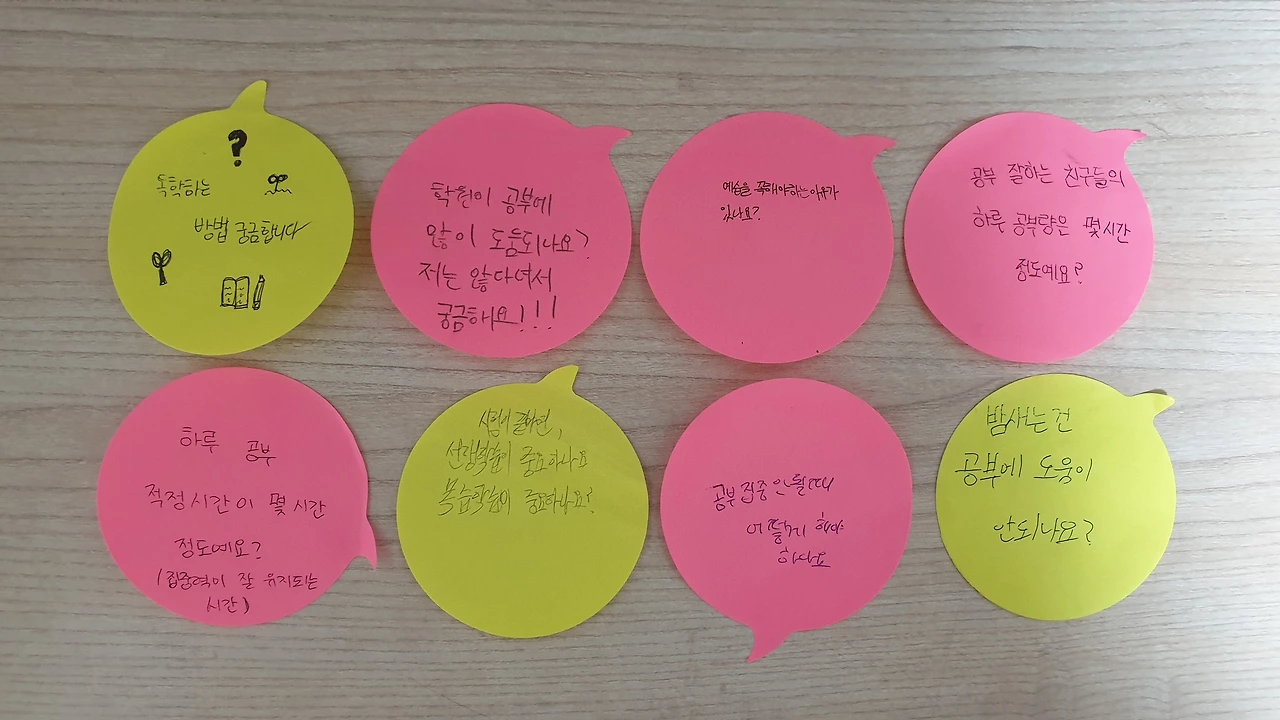 ?
독학하는
방법 궁금합니다
학원이 공부에
많이 도움되나요?
저는 않다여서
궁금해요!!!
예습을 꼭해야하는이유가
있나요?
공부 잘하는 친구들의
하루 공부량은 몇시간
정도예요?
하루 공부
적정시간이 몇시간
정도예요?
(집중력이 잘 유지되는
시간)
선행학습이 중요하나요
복습학습이 중요하나요?
공부집중안될때
어떻게 해야
하나요
밤새는건
공부에 도움이
안되나요?